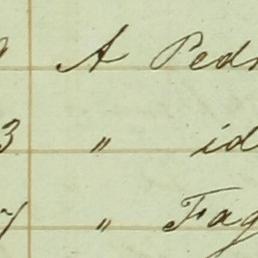 A Ped
3 " id
7 " Fag